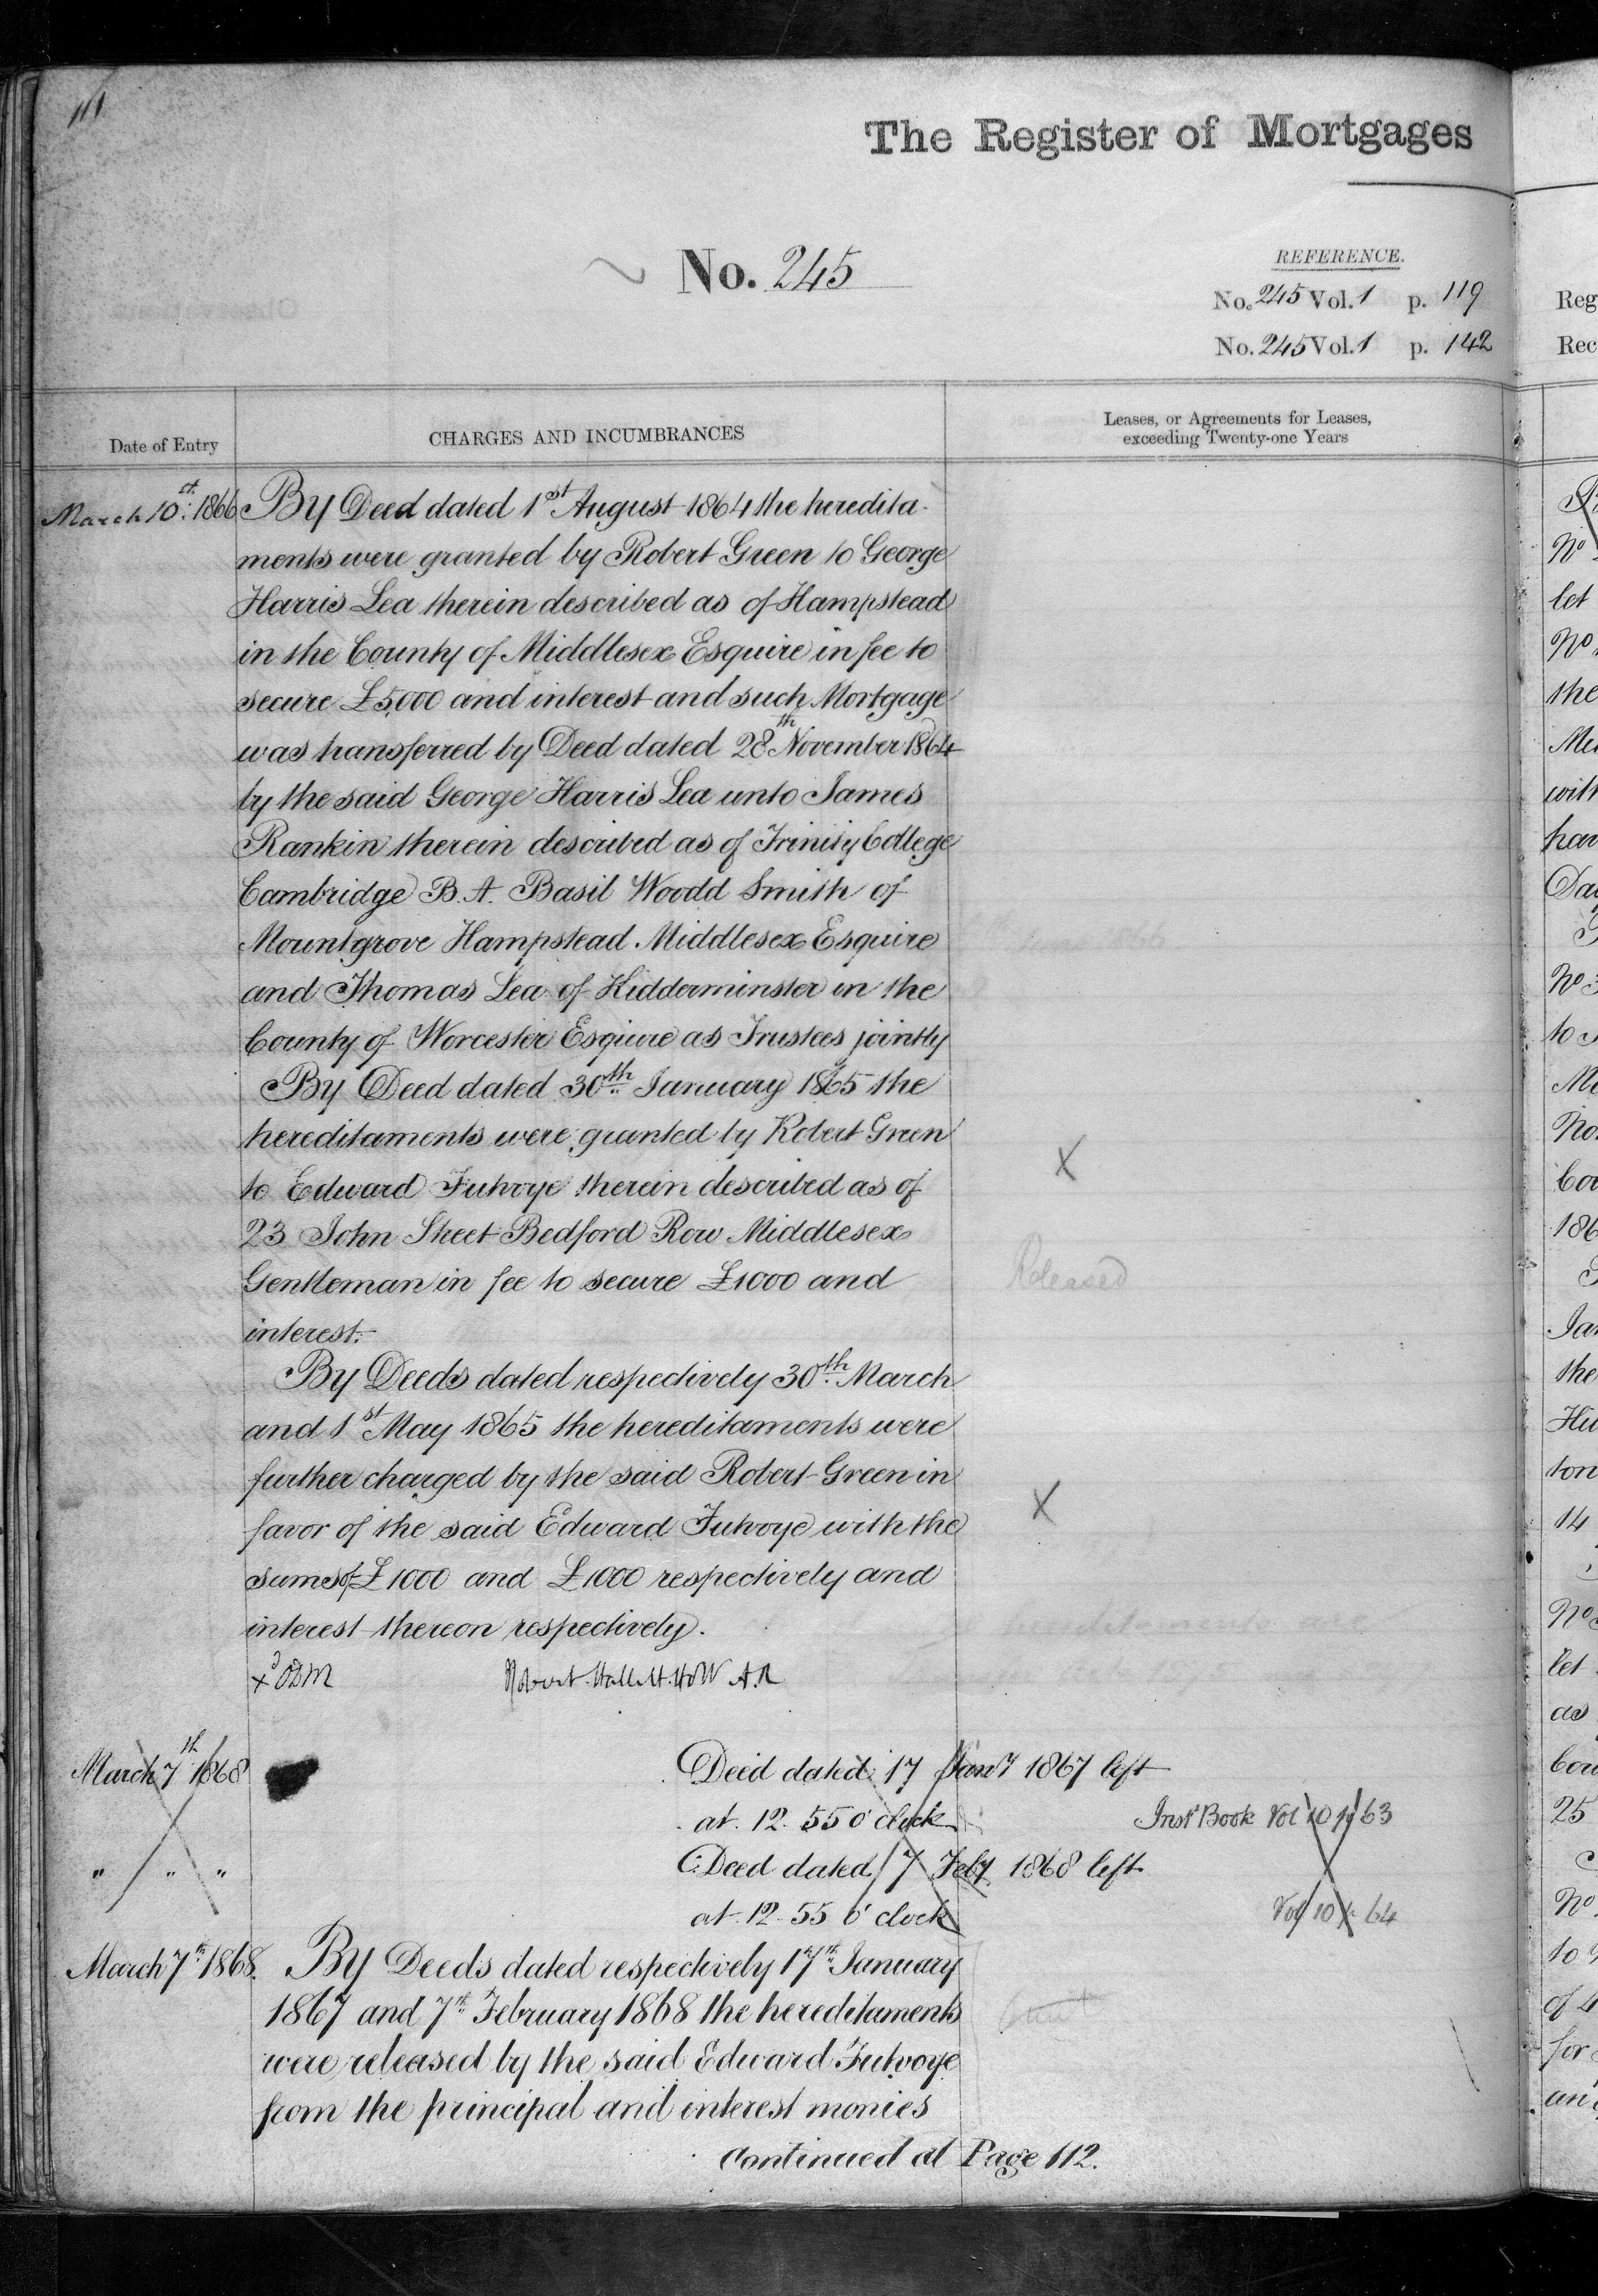 111
The Register of Mortgages
No. 245
REFERENCE.
No. 245 Vol. 1 p. 119
No. 245 Vol. 1 p. 142
Date of Entry
CHARGES AND INCUMBRANCES
Leases, or Agreements for Leases,
exceeding Twenty-one Years
March 10st 1866 By Deed dated 1st August 1864 the heredita-
ments were granted by Robert Green to George
Harris Lea therein described as of Hampstead
in the County of Middlesex Esquire in fee to
secure £5,000 and interest and such Mortgage
was transferred by Deed dated 28th November 1864
by the said George Harris Lea unto James
Rankin therein described as of Trinity College
Cambridge B.A. Basil Woodd Smith of
Mountgrove Hampstead Middlesex Esquire
and Thomas Lea of Kidderminster in the
County of Worcester Esquire as Trustees jointly
By Deed dated 30th January 1865 the
hereditaments were granted by Robert Green
X
to Edward Futvoye therein described as of
23 John Street Bedford Row Middlesex
Gentleman in fee to secure £1000 and
Released
interest.-
By Deeds dated respectively 30th March
and 1st May 1865 the hereditaments were
further charged by the said Robert Green in
favor of the said Edward Futvoye with the
X
sums of £1000 and £1000 respectively and
interest thereon respectively.
Robert Hallett
March 7th 1868
Deed dated 17 Jany 1867 left
at 12.55 o'clock
Inst Book Vol 10 p 63
" " "
Deed dated 7 Feby 1868 left
at 12.55 o'clock
Vol 10 p. 64
March 7th 1868. By Deeds dated respectively 17th January
1867 and 7th February 1868 the hereditaments
were released by the said Edward Futvoye
from the principal and interest monies
continued at Page 112.
Reg
Rec
No
let
No
the
with
No 3
to
No
let
as
25
No
to
of 4
for